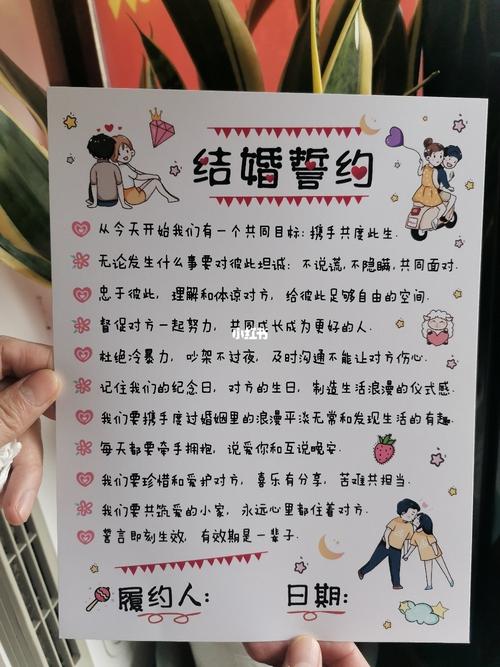 结婚誓约
从今天开始我们有一个共同目标:携手共度此生.
无论发生什么事要对彼此坦诚:不说谎,不隐瞒,共同面对.
忠于彼此,理解和体谅对方,给彼此足够自由的空间.
督促对方一起努力,共同成长成为更好的人.
小红书
杜绝冷暴力,吵架不过夜,及时沟通不能让对方伤心.
记住我们的纪念日,对方的生日,制造生活浪漫的仪式感.
我们要携手度过婚姻里的浪漫平淡无常和发现生活的有趣.
每天都要牵手拥抱,说爱你和互说晚安.
我们要珍惜和爱护对方,喜乐有分享,苦难共担当.
我们要共筑爱的小家,永远心里都住着对方.
誓言即刻生效,有效期是一辈子.
履约人: 日期: